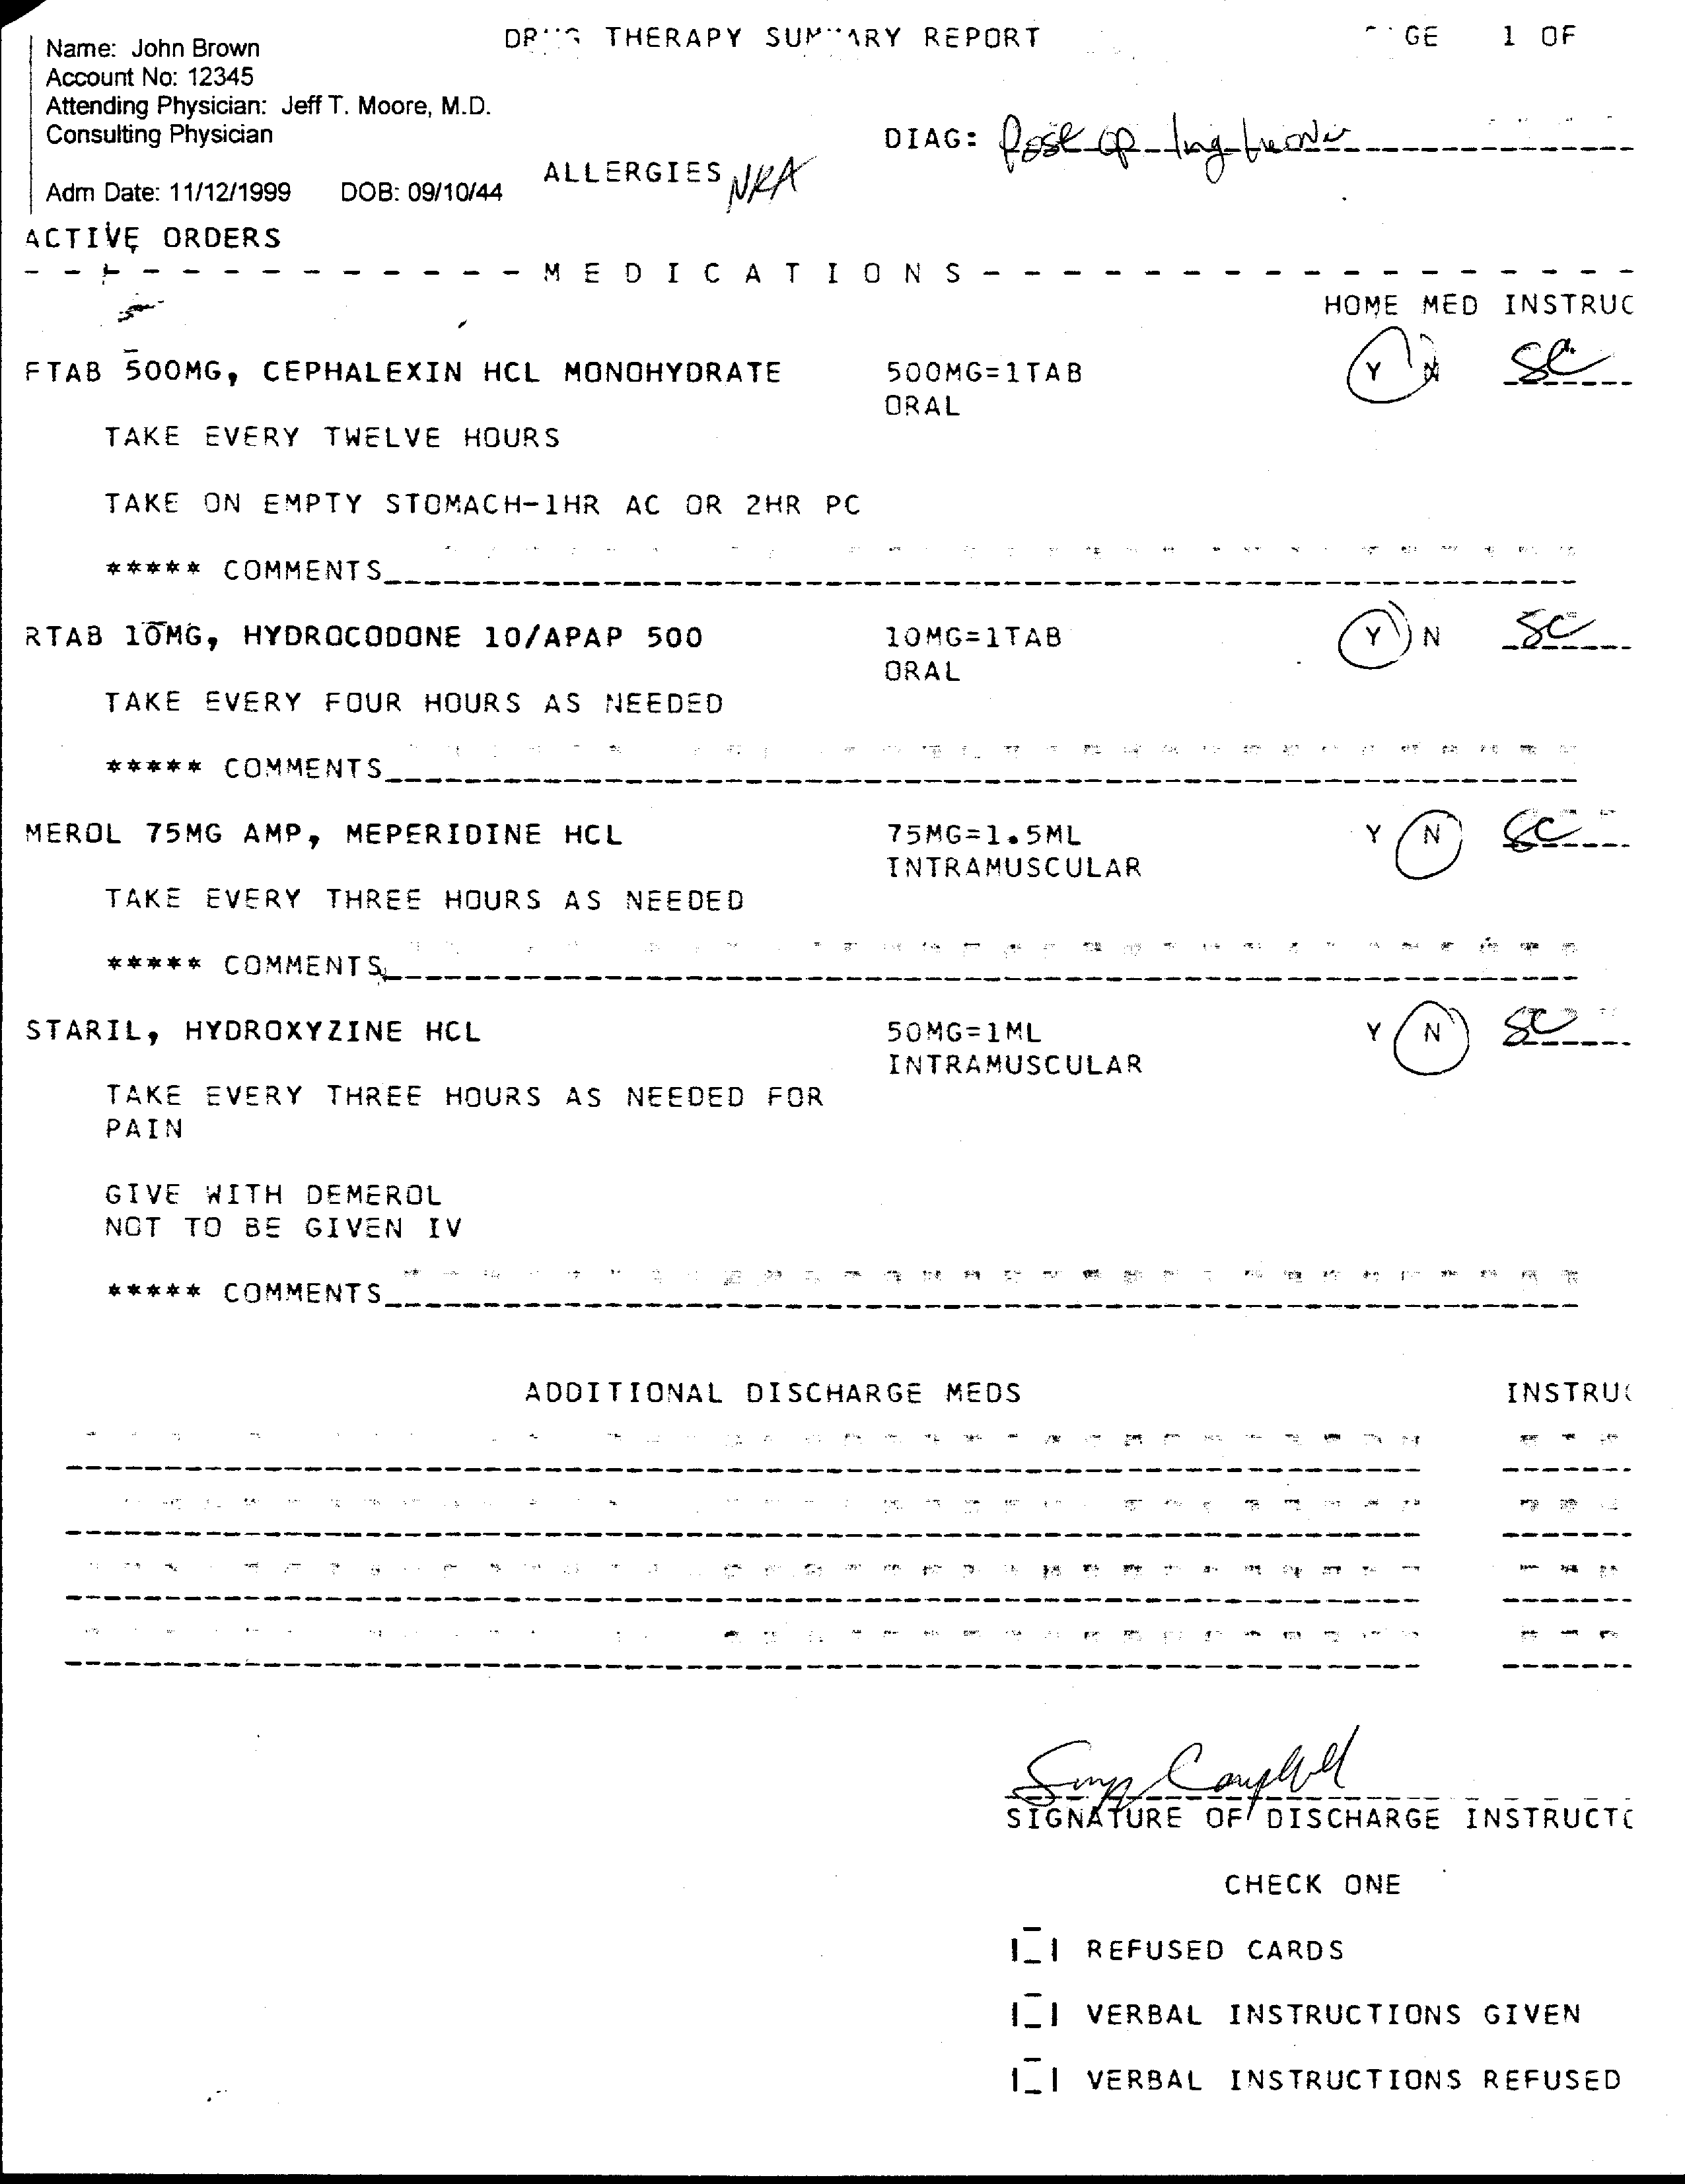 Name: John Brown
Account No: 12345
Attending Physician: Jeff T. Moore, M.D.
Consulting Physician
Adm Date: 11/12/1999 DOB: 09/10/44
THERAPY REPORT
GE 1 OF
DIAG: Post op Ing
ALLERGIES NKA
ACTIVE ORDERS
- - - - - - - - - - - - - M E D I C A T I O N S - - - - - - - - - - - - - - - - -
HOME MED INSTRUC
FTAB 500MG, CEPHALEXIN HCL MONOHYDRATE 500MG=1TAB Y N SC
ORAL
TAKE EVERY TWELVE HOURS
TAKE ON EMPTY STOMACH-1HR AC OR 2HR PC
***** COMMENTS
RTAB 10MG, HYDROCODONE 10/APAP 500 10MG=1TAB Y N SC
ORAL
TAKE EVERY FOUR HOURS AS NEEDED
***** COMMENTS
MEROL 75MG AMP, MEPERIDINE HCL 75MG=1.5ML Y N SC
INTRAMUSCULAR
TAKE EVERY THREE HOURS AS NEEDED
***** COMMENTS
STARIL, HYDROXYZINE HCL 50MG=1ML Y N SC
INTRAMUSCULAR
TAKE EVERY THREE HOURS AS NEEDED FOR
PAIN
GIVE WITH DEMEROL
NOT TO BE GIVEN IV
***** COMMENTS
ADDITIONAL DISCHARGE MEDS INSTRU
Campbell
SIGNATURE OF DISCHARGE INSTRUCT
CHECK ONE
REFUSED CARDS
VERBAL INSTRUCTIONS GIVEN
VERBAL INSTRUCTIONS REFUSED